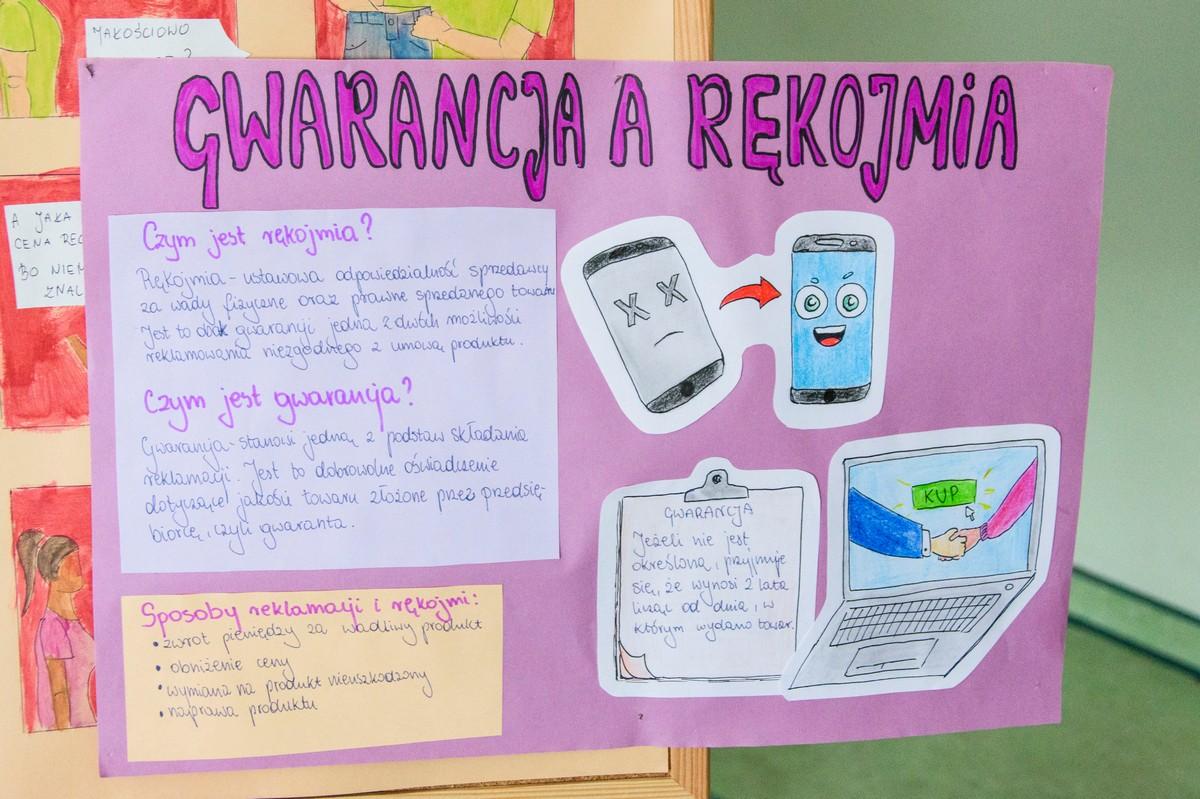 JAKOŚCIOWO
GWARANCJA A RĘKOJMIA
A JAKA
CENA REG
BO NIEM
ZNAL
Czym jest rękojmia?
Rękojmia - ustawowa odpowiedzialność sprzedawcy
za wady fizyczne oraz prawne sprzedanego towaru
Jest to obok gwarancji jedna z dwóch możliwości
reklamowania niezgodnego z umową produktu.
Czym jest gwarancja?
Gwarancja - stanowi jedną z podstaw składania
reklamacji. Jest to dobrowolne oświadczenie
dotyczące jakości towaru złożone przez przedsię-
biorcę, czyli gwaranta.
Sposoby reklamacji i rękojmi:
• zwrot pieniędzy za wadliwy produkt
• obniżenie ceny
• wymiana na produkt nieuszkodzony
• naprawa produktu
GWARANCJA
Jeżeli nie jest
określona, przyjmuje
się, że wynosi 2 lata
licząc od dnia, w
którym wydano towar.
KUP